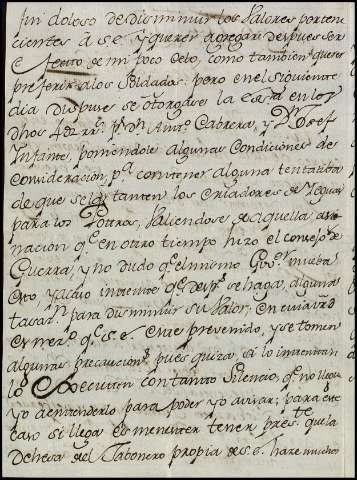 fin doloso de disminuir los Valores pertene
cientes â S.E. y querer agregar despues ser
efecto de mi poco celo, como tambien querer
preferir a los Soldados. pero en el siguiente
dia dispuse se otorgase la en los
dhos 4 Dn Antto Cabrera, y Dn Josef
Infante, poniendole algunas Condiciones de
Consideracion, pa contener alguna tentatiba
de que se los Criadores de Yeguas
para los Potros, Valiendose de aquella
nacion qe en otro tiempo hizo el consejo de
Guerra, y no dudo qe el mismo Govor mueba
esto, y acaso intente qe se haga alguna
tasasn para disminuir su Valor; En cuia
es nezo qe S.E. este prevenido, y se tomen
algunas precauciones pues quiza, si lo intentan
lo Executen con tanto Silencio, qe no llegue
yo a entenderlo para poder yo avisar; para este
caso si llega es menester tener preste que la
Dehesa del Tabonero propia de S.E. hace muchos